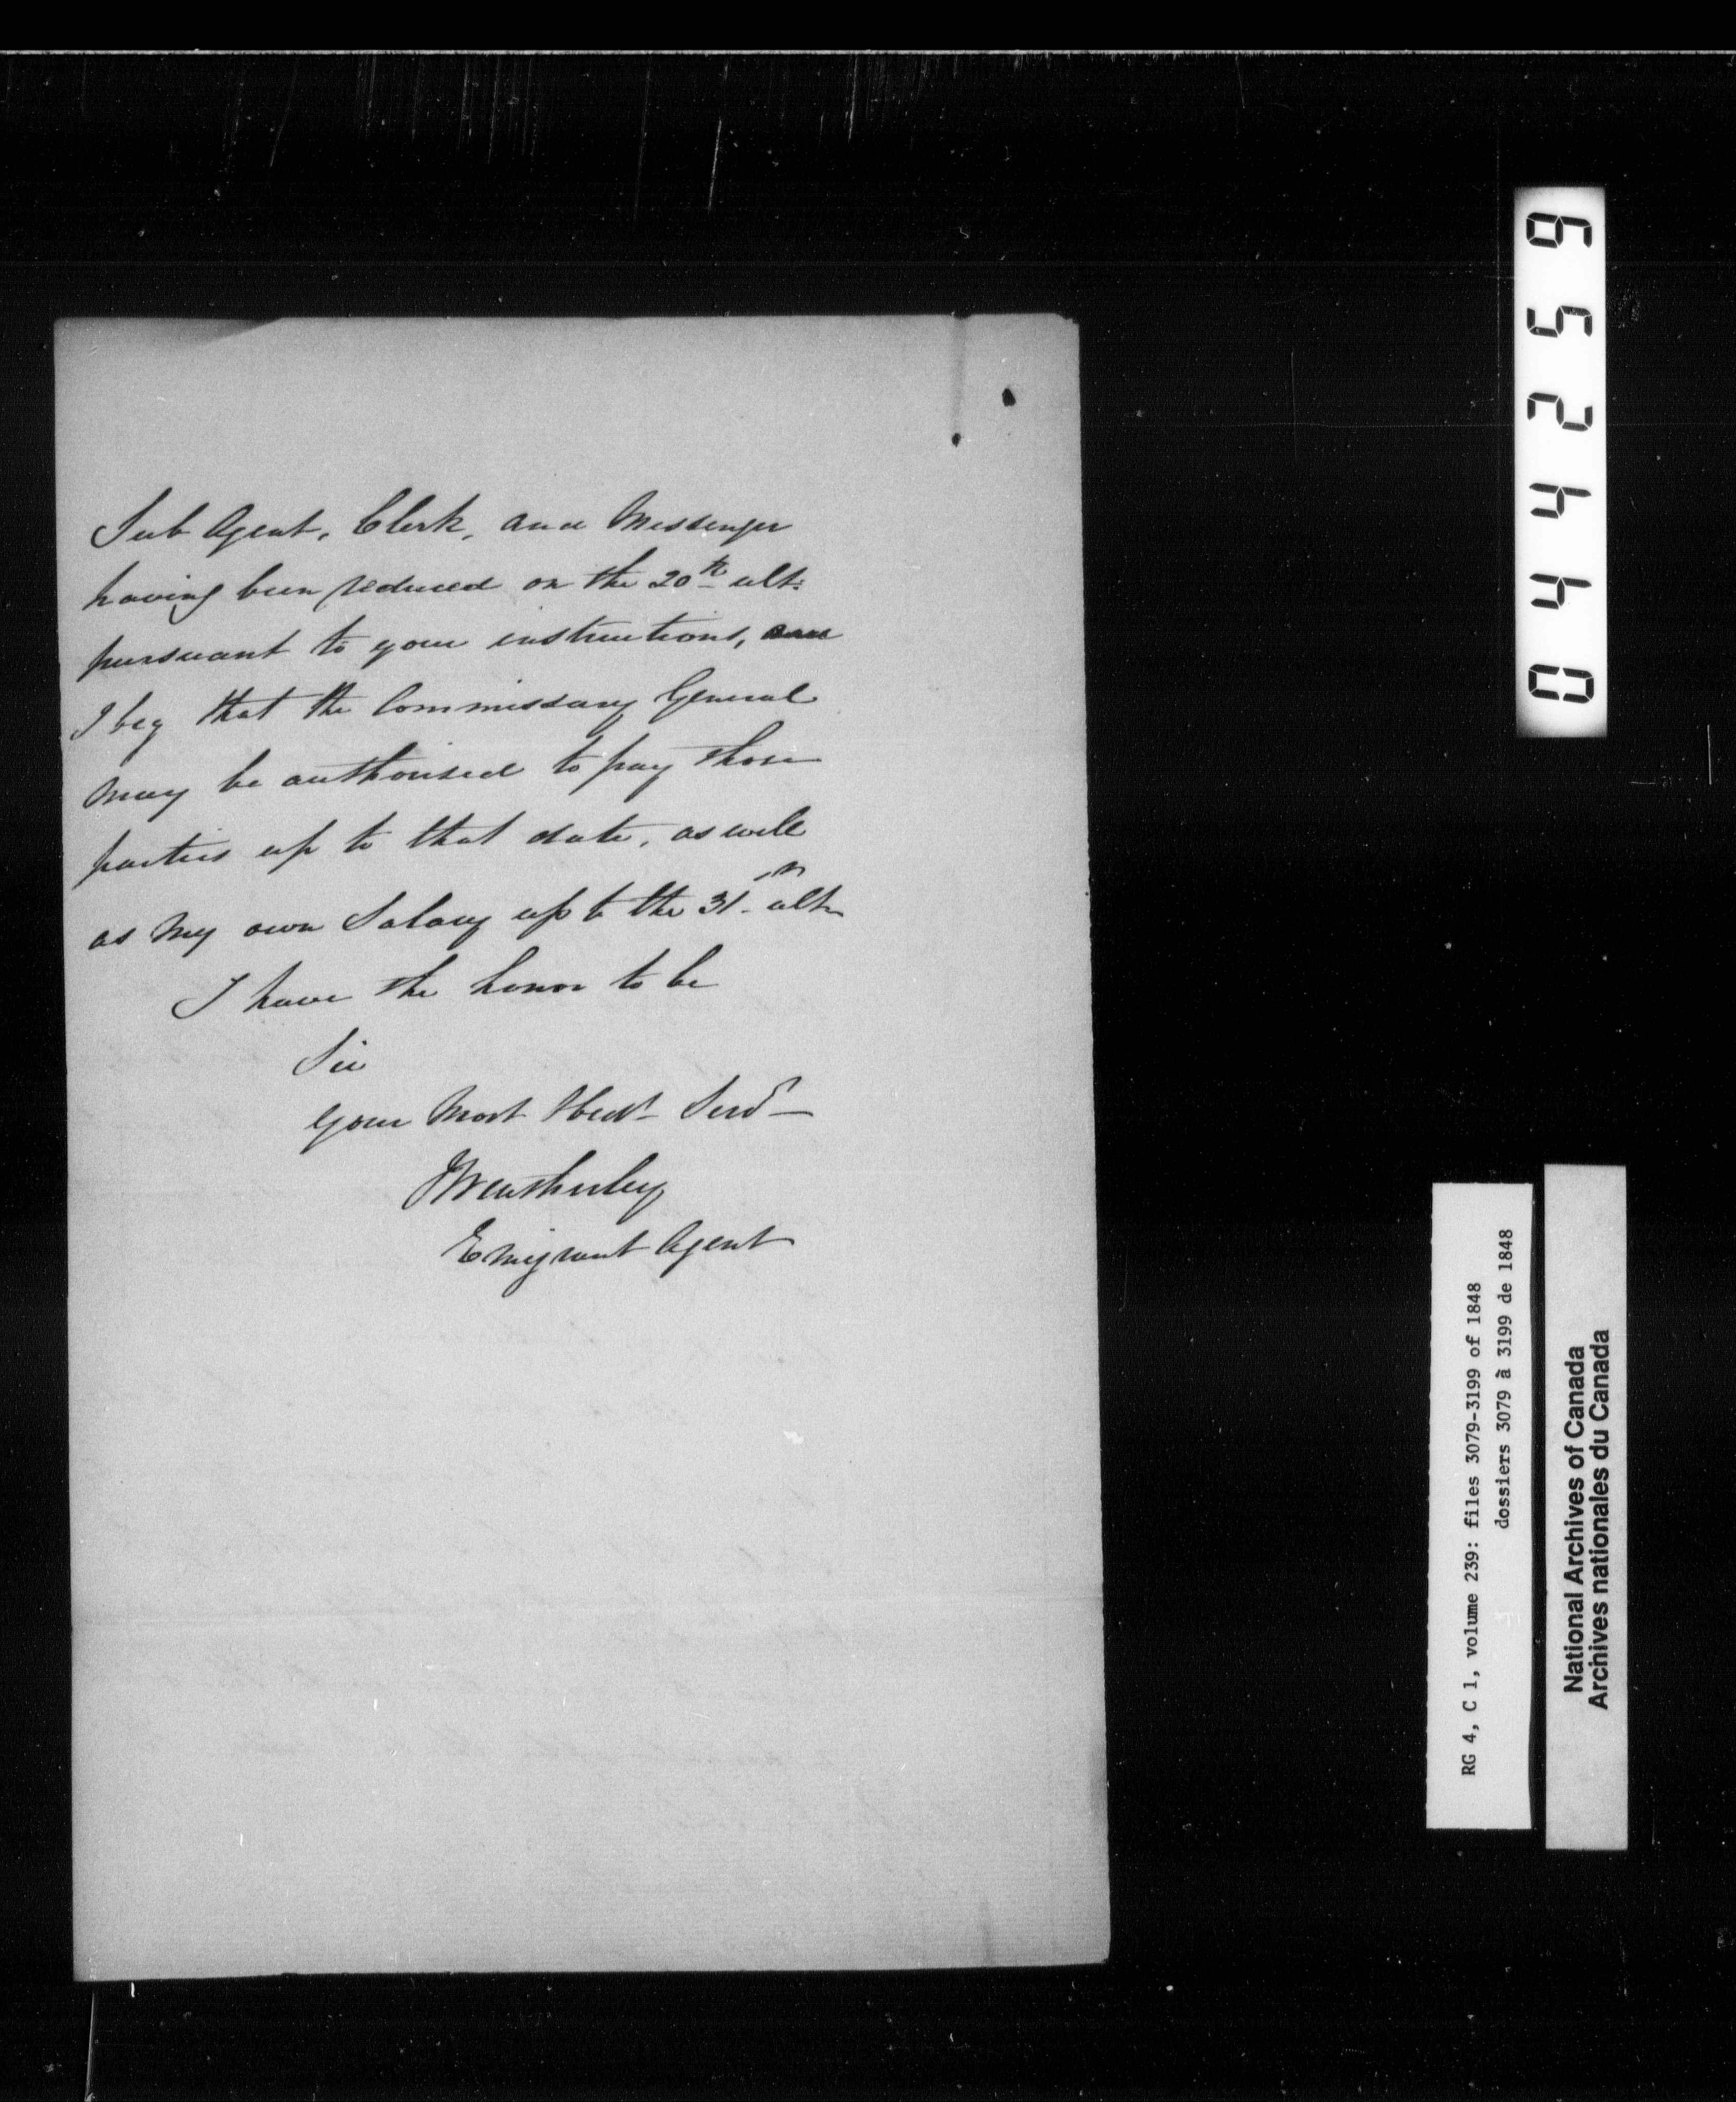 Sub Agent, Clerk, and Messenger
having been reduced on the 20th ult:
pursuant to your instructions, and
I beg that the Commissary General
may be authorised to pay those
parties up to that date, as well
as my own Salary up to the 31st ulto
I have the honor to be
Sir
Your Most Obedt Servt
J Weatherley
Emigrant Agent
044259
RG 4, C 1, volume 239: files 3079-3199 of 1848
dossiers 3079 à 3199 de 1848
National Archives of Canada
Archives nationales du Canada